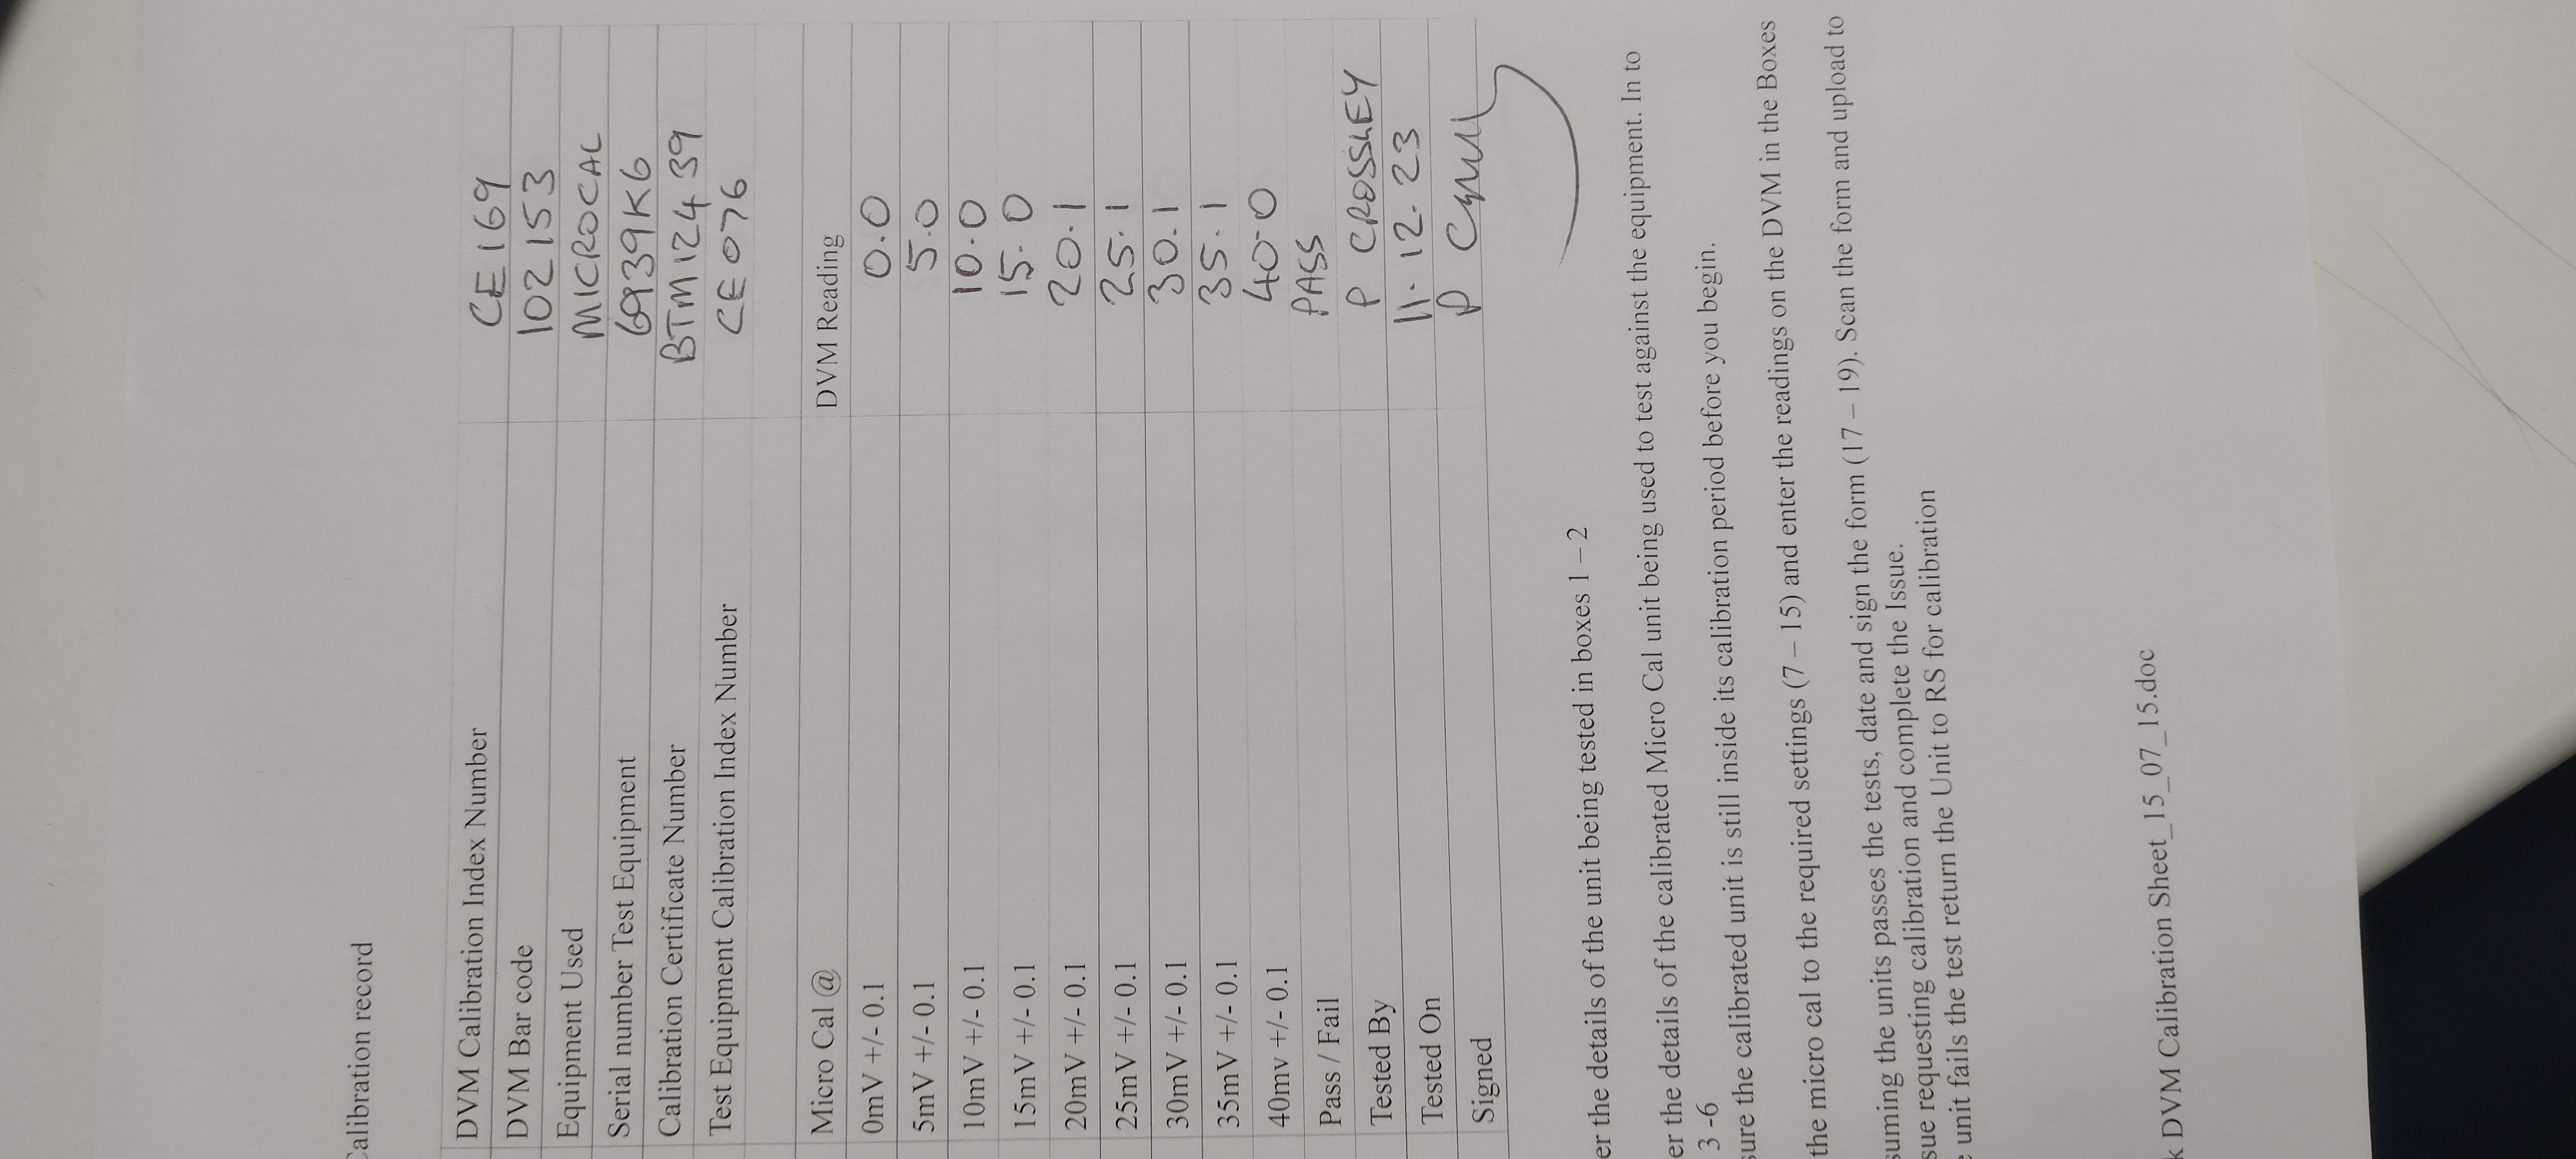 Calibration record
DVM Calibration Index Number CE169
DVM Bar code 102153
Equipment Used MICROCAL
Serial number Test Equipment 6939K6
Calibration Certificate Number BTM112439
Test Equipment Calibration Index Number CE076
Micro Cal @ DVM Reading
0mV +/- 0.1 0.0
5mV +/- 0.1 5.0
10mV +/- 0.1 10.0
15mV +/- 0.1 15.0
20mV +/- 0.1 20.1
25mV +/- 0.1 25.1
30mV +/- 0.1 30.1
35mV +/- 0.1 35.1
40mv +/- 0.1 40.0
Pass / Fail PASS
Tested By P CROSSLEY
Tested On 11.12.23
Signed P
er the details of the unit being tested in boxes 1 – 2
er the details of the calibrated Micro Cal unit being used to test against the equipment. In to
3 -6
sure the calibrated unit is still inside its calibration period before you begin.
the micro cal to the required settings (7 – 15) and enter the readings on the DVM in the Boxes
suming the units passes the tests, date and sign the form (17 – 19). Scan the form and upload to
sue requesting calibration and complete the Issue.
e unit fails the test return the Unit to RS for calibration
k DVM Calibration Sheet_15_07_15.doc